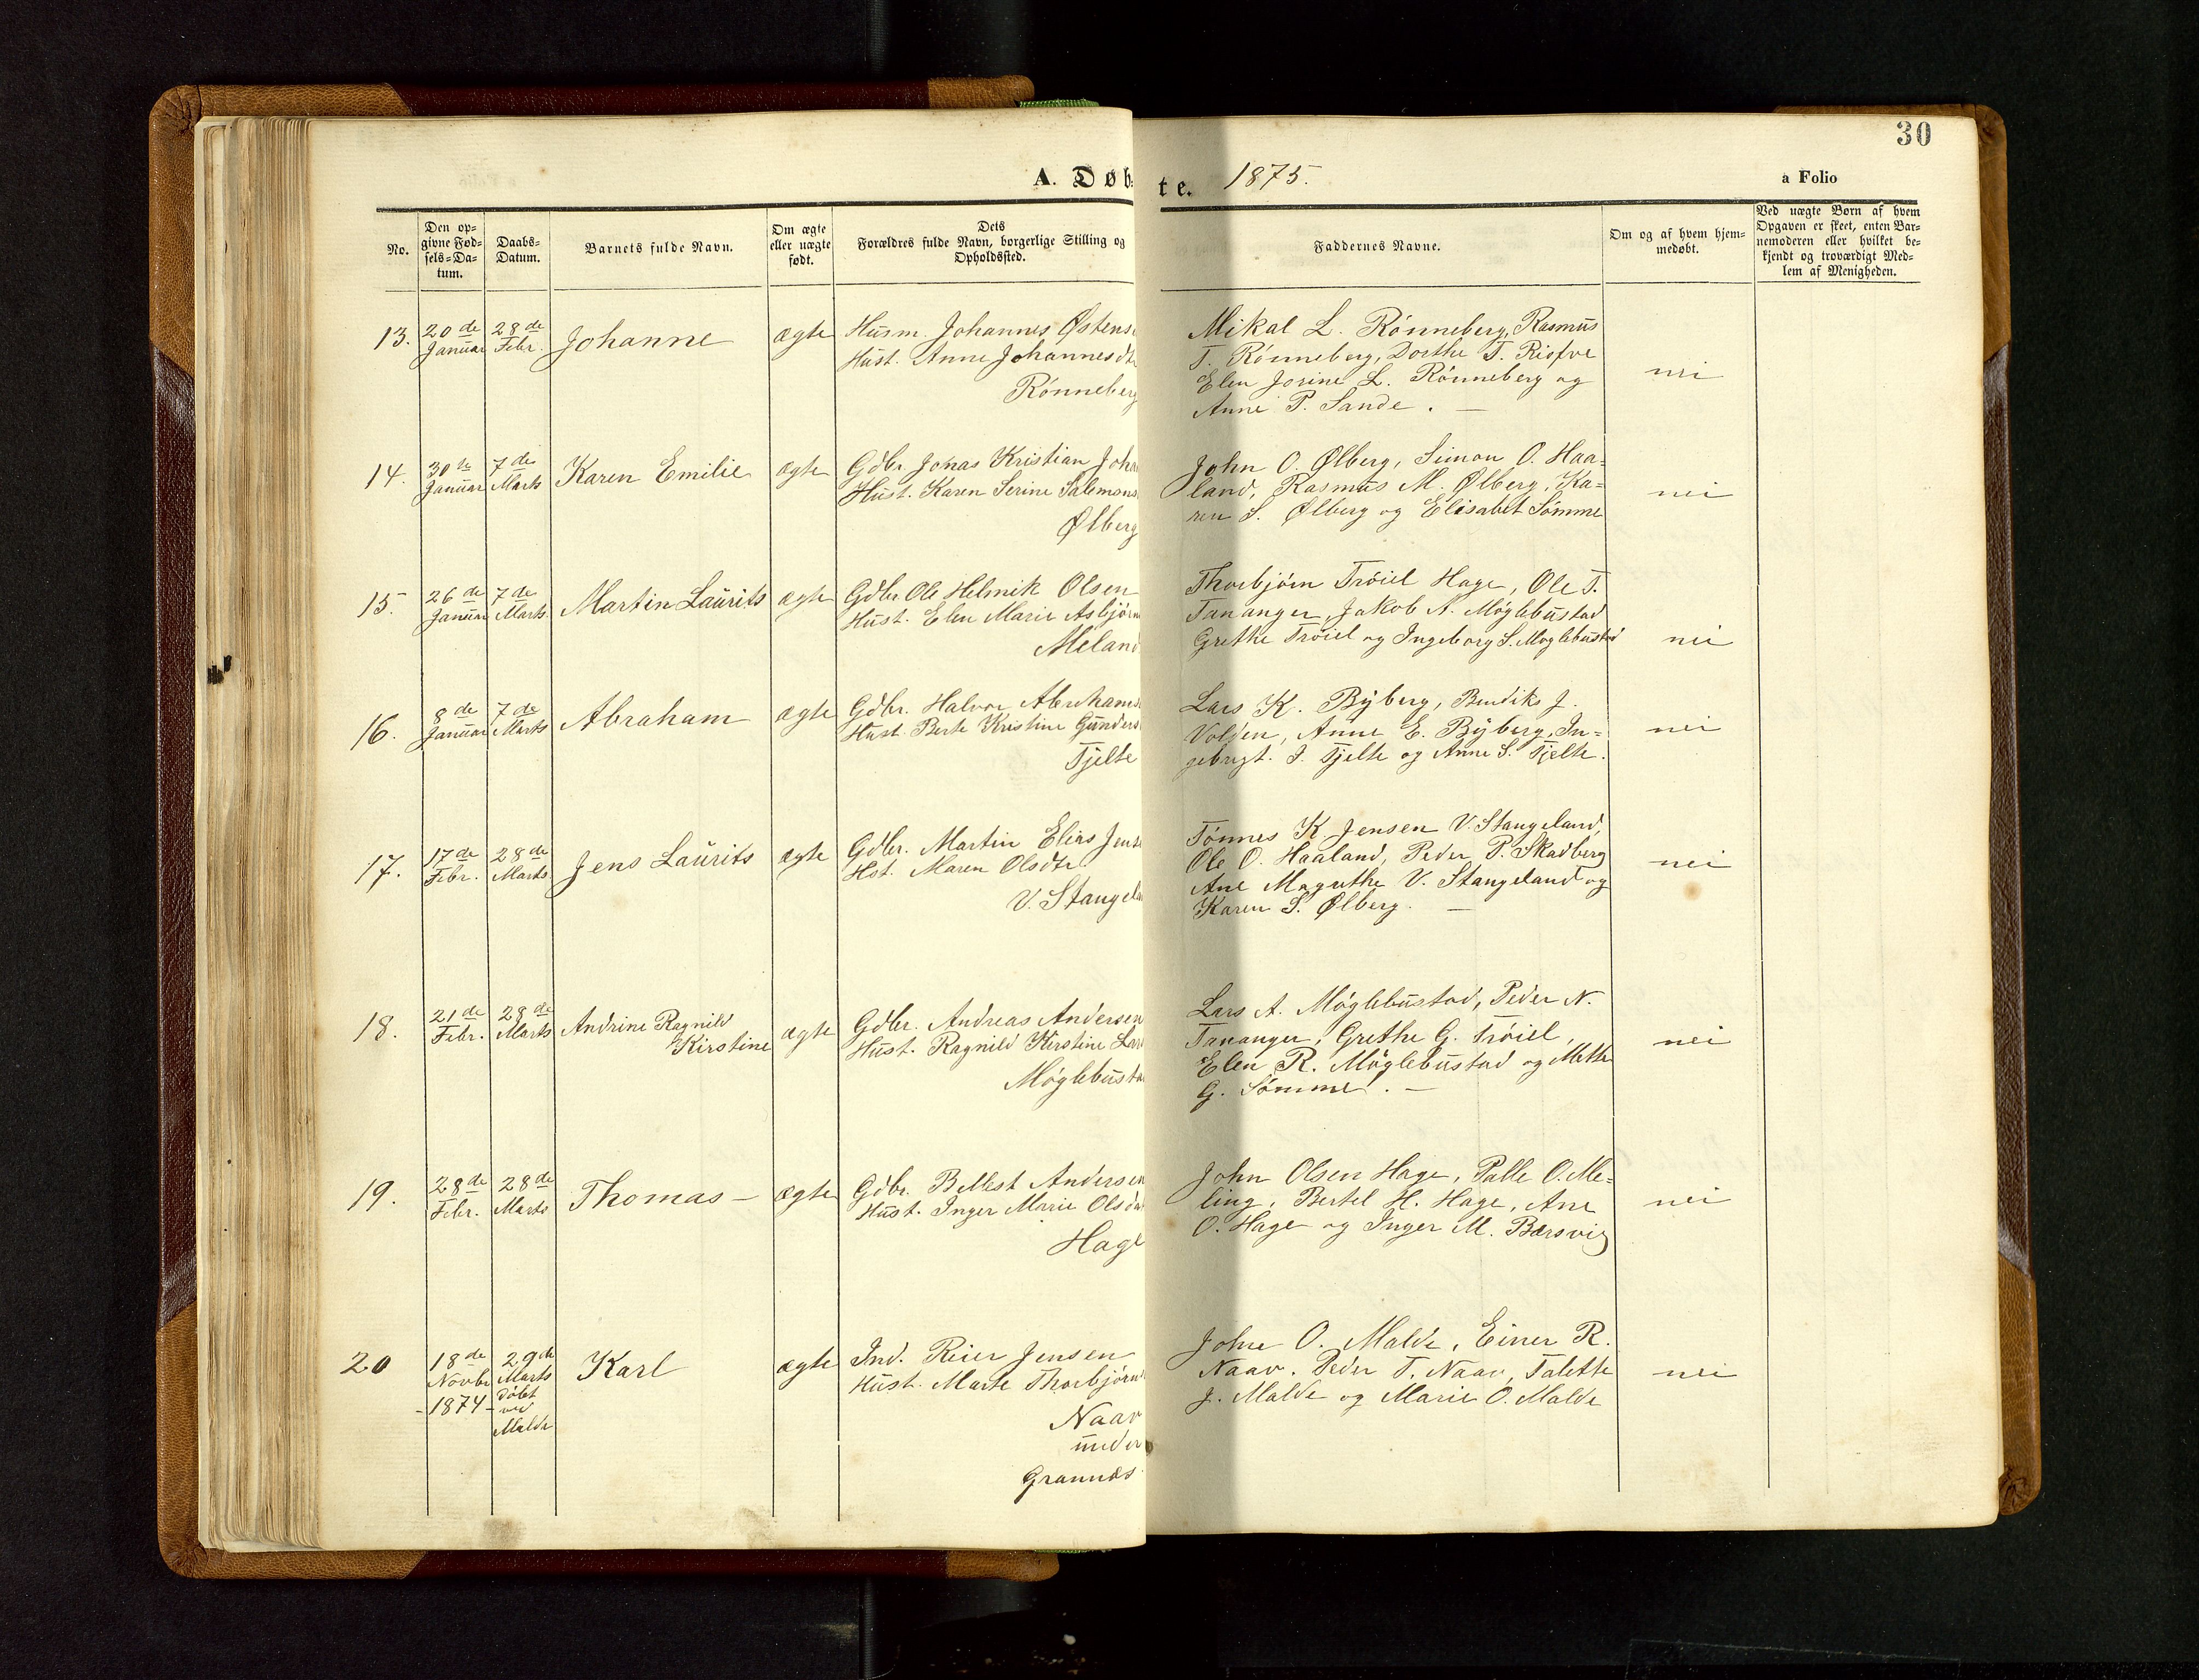 30
A. Døb-
te. 1875.
a Folio
No.
Den op-
givne Fød-
sels-Da-
tum.
Daabs-
Datum.
Barnets fulde Navn.
Om ægte
eller uægte
født.
Dets
Forældres fulde Navn, borgerlige Stilling og
Opholdssted.
Faddernes Navne.
Om og af hvem hjem-
medøbt.
Ved uægte Børn af hvem
Opgaven er skeet, enten Bar-
nemoderen eller hvilket be-
kjendt og troværdigt Med-
lem af Menigheden.
13.
20de
Januar
28de
Febr.
Johanne
ægte
Husm. Johannes Østens
Hust. Anne Johannesdt
Rönneberg
Mikal L. Rönneberg, Rasmus
T. Rönneberg, Dorthe T.
Elen Josine L. Rönneberg og
Anne P. Sande. —
nei
14.
30te
Januar
7de
Marts
Karen Emilie
ægte
Gdbr. Jonas Kristian Joha
Hust. Karen Serine Salemons
Ølberg
John O. Ølberg, Simon O. Haa=
land, Rasmus M. Ølberg, Ka=
ren S. Ølberg og Elisabet Sömme
nei
15.
26de
Januar
7de
Marts.
Martin Laurits
ægte
Gdbr. Ole Helmik Olsen
Hust. Elen Marie Asbjörn
Meland
Thorbjörn Tröiel Hage, Ole T.
Tananger, Jakob A. Möglebustad
Grethe Tröiel og Ingeborg S. Moglebustad
nei
16.
8de
Januar
7de
Marts
Abraham
ægte
Gdbr. Halvor Abrahams
Hust. Berte Kristine Gunders
Tjelte
Lars K. Byberg, Bendiks J.
Volsen, Anne E. Byberg, In=
gebrigt. I. Tjelte og Anne S. Tjelte.
nei
17.
17de
Febr.
28de
Marts
Jens Laurits
ægte
Gdbr. Martin Elias Jens
Hst. Maren Olsdtr
V. Stangela
Tönnes K. Jensen V. Stangeland,
Ole O. Haaland, Peder P. Skadberg
Ane Magrethe V. Stangeland og
Karen S. Ølberg. —
nei
18.
21de
Febr.
28de
Marts
Andrine Ragnild
Kirstine
ægte
Gdbr. Andreas Andersen
Hust. Ragnild Kirstine Lar
Möglebusta
Lars A. Möglebustad, Peder N.
Tananger, Grethe G. Tröiel,
Elen R. Möglebustad og Methe
G. Sömme. —
nei
19.
28de
Febr.
28de
Marts
Thomas —
ægte
Gdbr. Bellest Andersen
Hust. Inger Marie Olsda
Hage
John Olsen Hage, Palle O. Me=
ling, Bertel H. Hage, Ane
O. Hage og Inger M. Bærsvig
nei
20
18de
Novbr
-1874-
29de
Marts
döbt
ved
Malde
Karl
ægte
Ind. Reier Jensen
Hust. Marte Thorbjörns
Naav
under
Grannæs
John O. Malde, Einer R.
Naav. Peder T. Naav, Talette
J. Malde og Marie O. Malde
nei